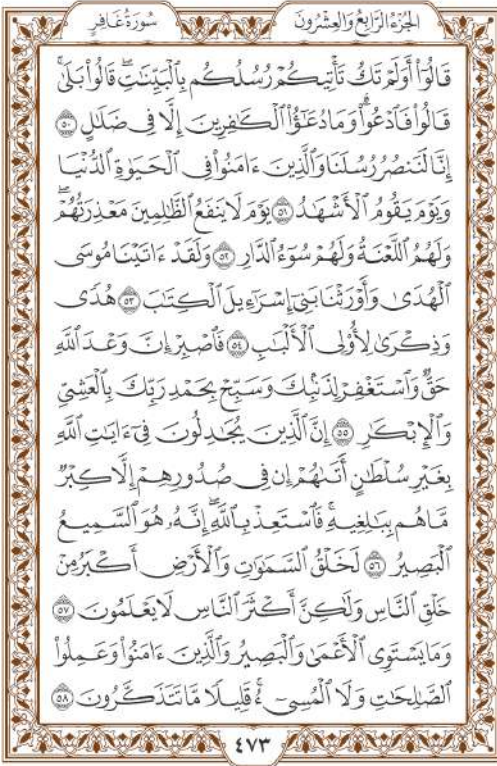 الجُزْءُ الرَّابِعُ وَالعِشْرُونَ
سُورَةُ غَافِرٍ
قَالُوٓاْ أَوَلَمْ تَكُ تَأْتِيكُمْ رُسُلُكُم بِٱلْبَيِّنَٰتِۖ قَالُواْ بَلَىٰۚ
قَالُواْ فَٱدْعُواْۗ وَمَا دُعَٰٓؤُاْ ٱلْكَٰفِرِينَ إِلَّا فِي ضَلَٰلٍ ٥٠
إِنَّا لَنَنصُرُ رُسُلَنَا وَٱلَّذِينَ ءَامَنُواْ فِي ٱلْحَيَوٰةِ ٱلدُّنْيَا
وَيَوْمَ يَقُومُ ٱلْأَشْهَٰدُ ٥١ يَوْمَ لَا يَنفَعُ ٱلظَّٰلِمِينَ مَعْذِرَتُهُمْۖ
وَلَهُمُ ٱللَّعْنَةُ وَلَهُمْ سُوٓءُ ٱلدَّارِ ٥٢ وَلَقَدْ ءَاتَيْنَا مُوسَى
ٱلْهُدَىٰ وَأَوْرَثْنَا بَنِيٓ إِسْرَٰٓءِيلَ ٱلْكِتَٰبَ ٥٣ هُدًى
وَذِكْرَىٰ لِأُوْلِي ٱلْأَلْبَٰبِ ٥٤ فَٱصْبِرْ إِنَّ وَعْدَ ٱللَّهِ
حَقٌّ وَٱسْتَغْفِرْ لِذَنۢبِكَ وَسَبِّحْ بِحَمْدِ رَبِّكَ بِٱلْعَشِيِّ
وَٱلْإِبْكَٰرِ ٥٥ إِنَّ ٱلَّذِينَ يُجَٰدِلُونَ فِيٓ ءَايَٰتِ ٱللَّهِ
بِغَيْرِ سُلْطَٰنٍ أَتَىٰهُمْ إِن فِي صُدُورِهِمْ إِلَّا كِبْرٌ
مَّا هُم بِبَٰلِغِيهِۚ فَٱسْتَعِذْ بِٱللَّهِۖ إِنَّهُۥ هُوَ ٱلسَّمِيعُ
ٱلْبَصِيرُ ٥٦ لَخَلْقُ ٱلسَّمَٰوَٰتِ وَٱلْأَرْضِ أَكْبَرُ مِنْ
خَلْقِ ٱلنَّاسِ وَلَٰكِنَّ أَكْثَرَ ٱلنَّاسِ لَا يَعْلَمُونَ ٥٧
وَمَا يَسْتَوِي ٱلْأَعْمَىٰ وَٱلْبَصِيرُ وَٱلَّذِينَ ءَامَنُواْ وَعَمِلُواْ
ٱلصَّٰلِحَٰتِ وَلَا ٱلْمُسِيٓءُۚ قَلِيلًا مَّا تَتَذَكَّرُونَ ٥٨
٤٧٣